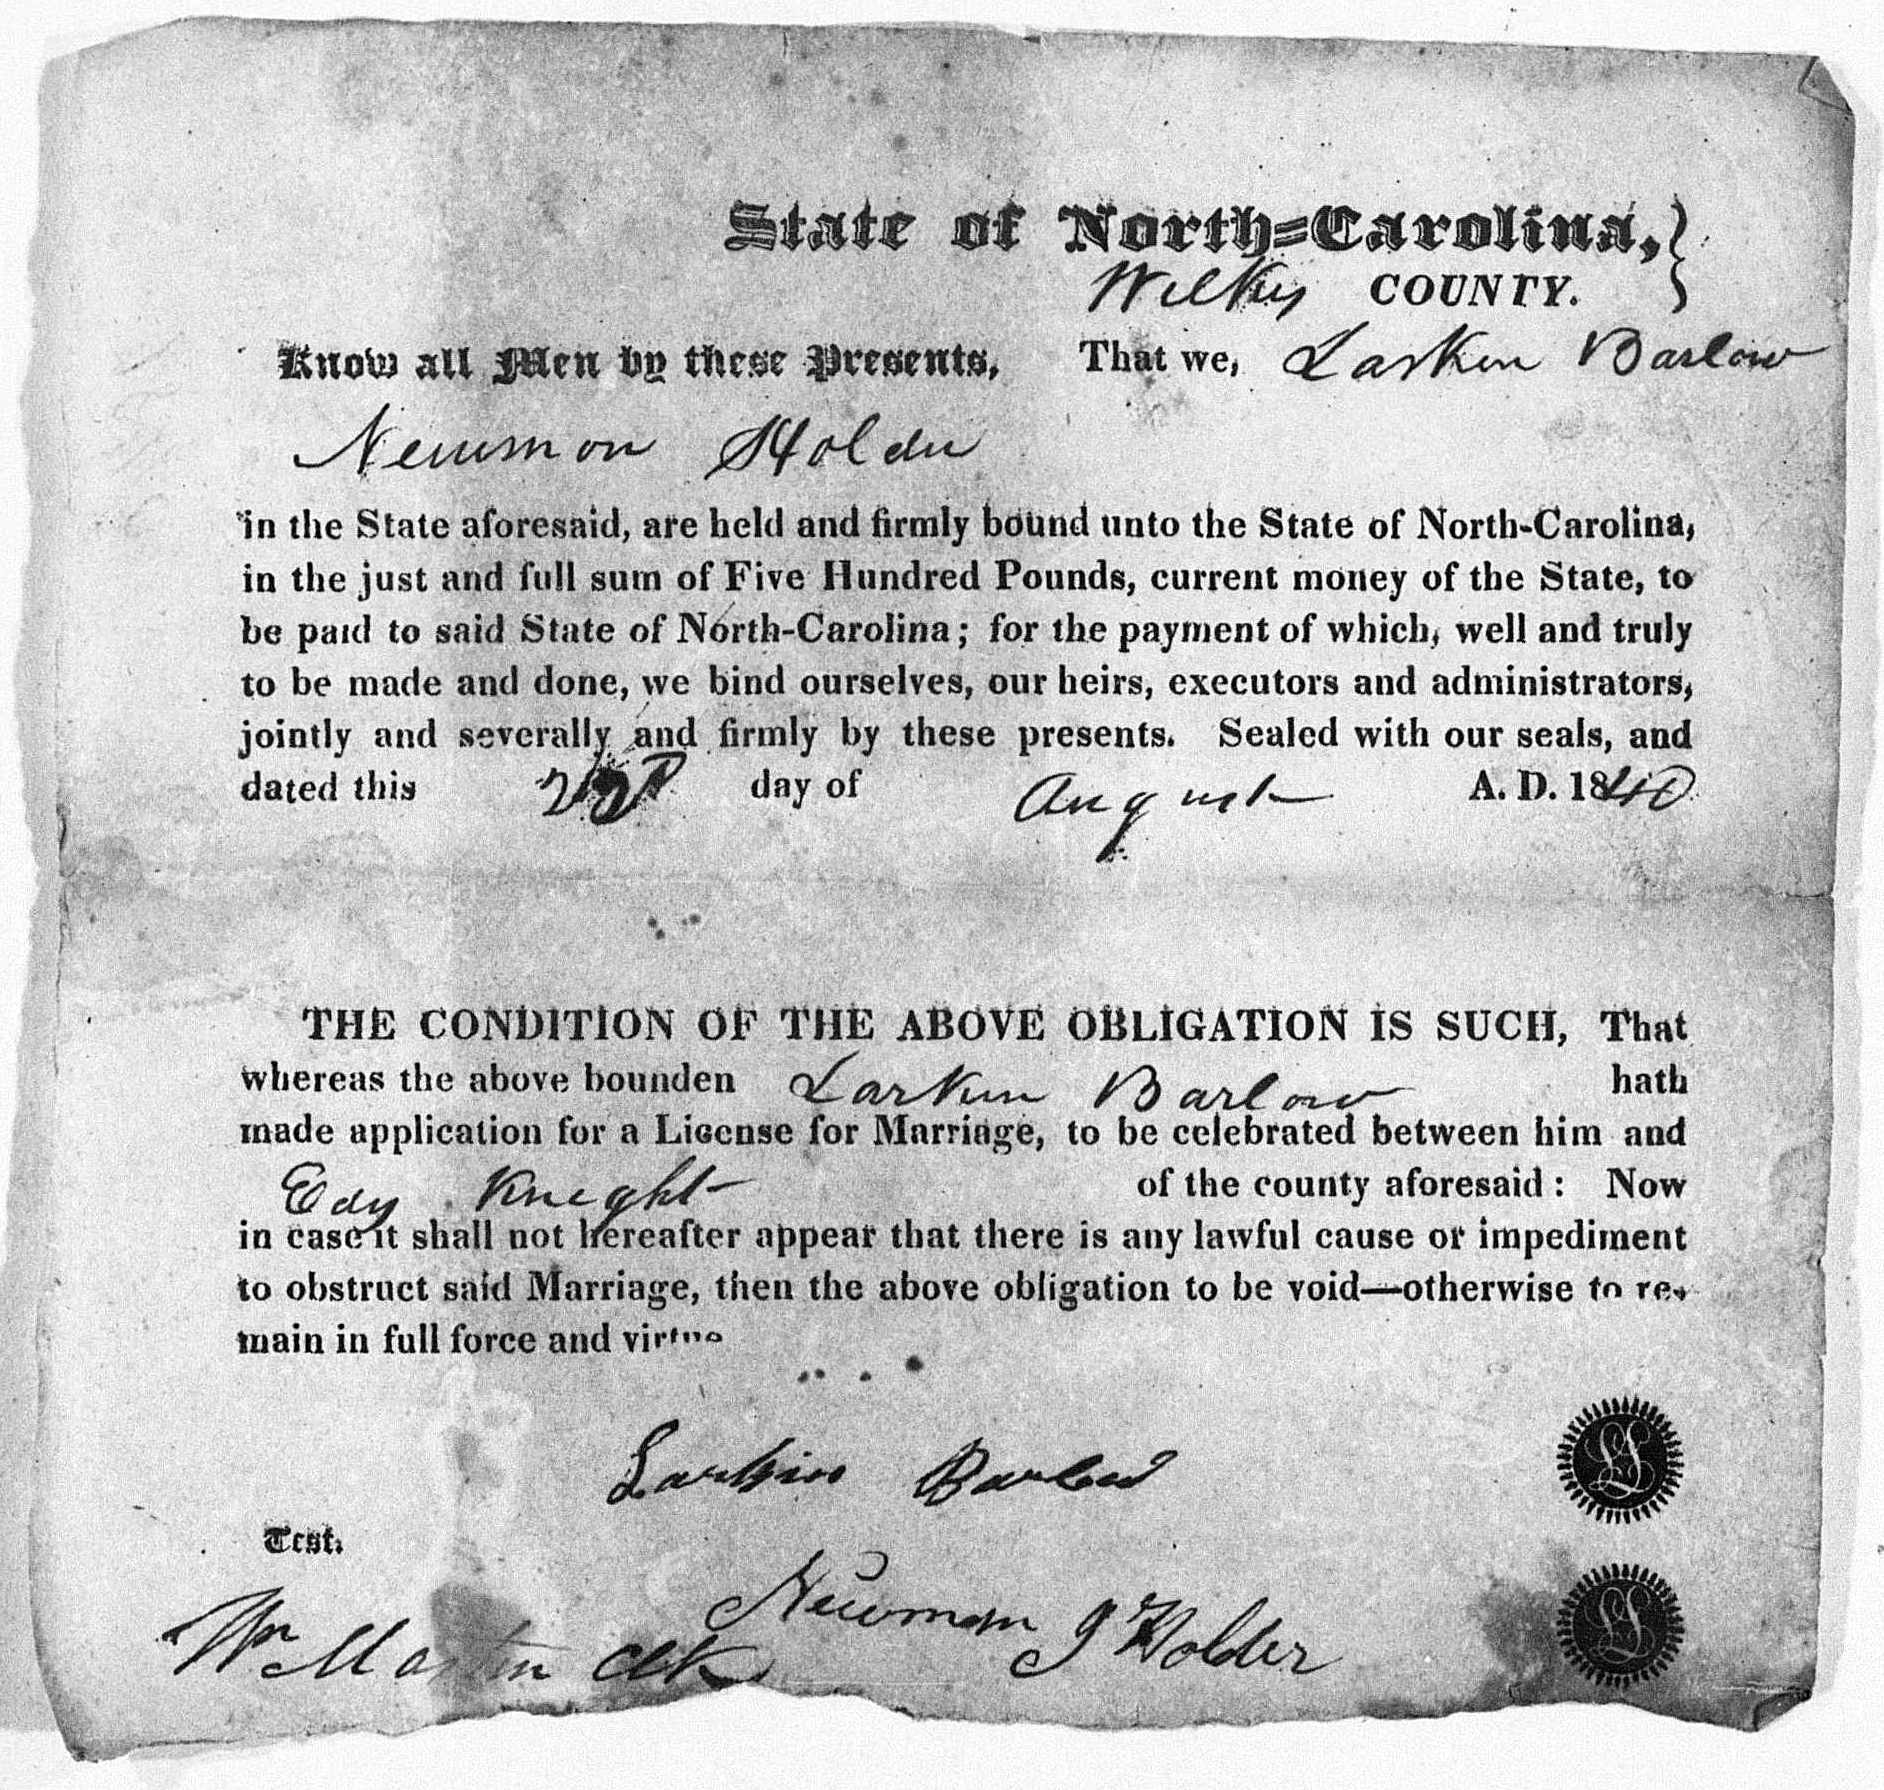 State of North-Carolina,
Wilkes COUNTY.
Know all Men by these Presents, That we, Larken Barlow
Newmon Holder
in the State aforesaid, are held and firmly bound unto the State of North-Carolina,
in the just and full sum of Five Hundred Pounds, current money of the State, to
be paid to said State of North-Carolina; for the payment of which, well and truly
to be made and done, we bind ourselves, our heirs, executors and administrators,
jointly and severally and firmly by these presents. Sealed with our seals, and
dated this day of August A. D. 1840
THE CONDITION OF THE ABOVE OBLIGATION IS SUCH, That
whereas the above bounden Larken Barlow hath
made application for a License for Marriage, to be celebrated between him and
Edy Kneght of the county aforesaid: Now
in case it shall not hereafter appear that there is any lawful cause or impediment
to obstruct said Marriage, then the above obligation to be void—otherwise to re-
main in full force and virtue
Larkin Barlow
LS
Test.
Newman J Holder
LS
Wm Martin Clk